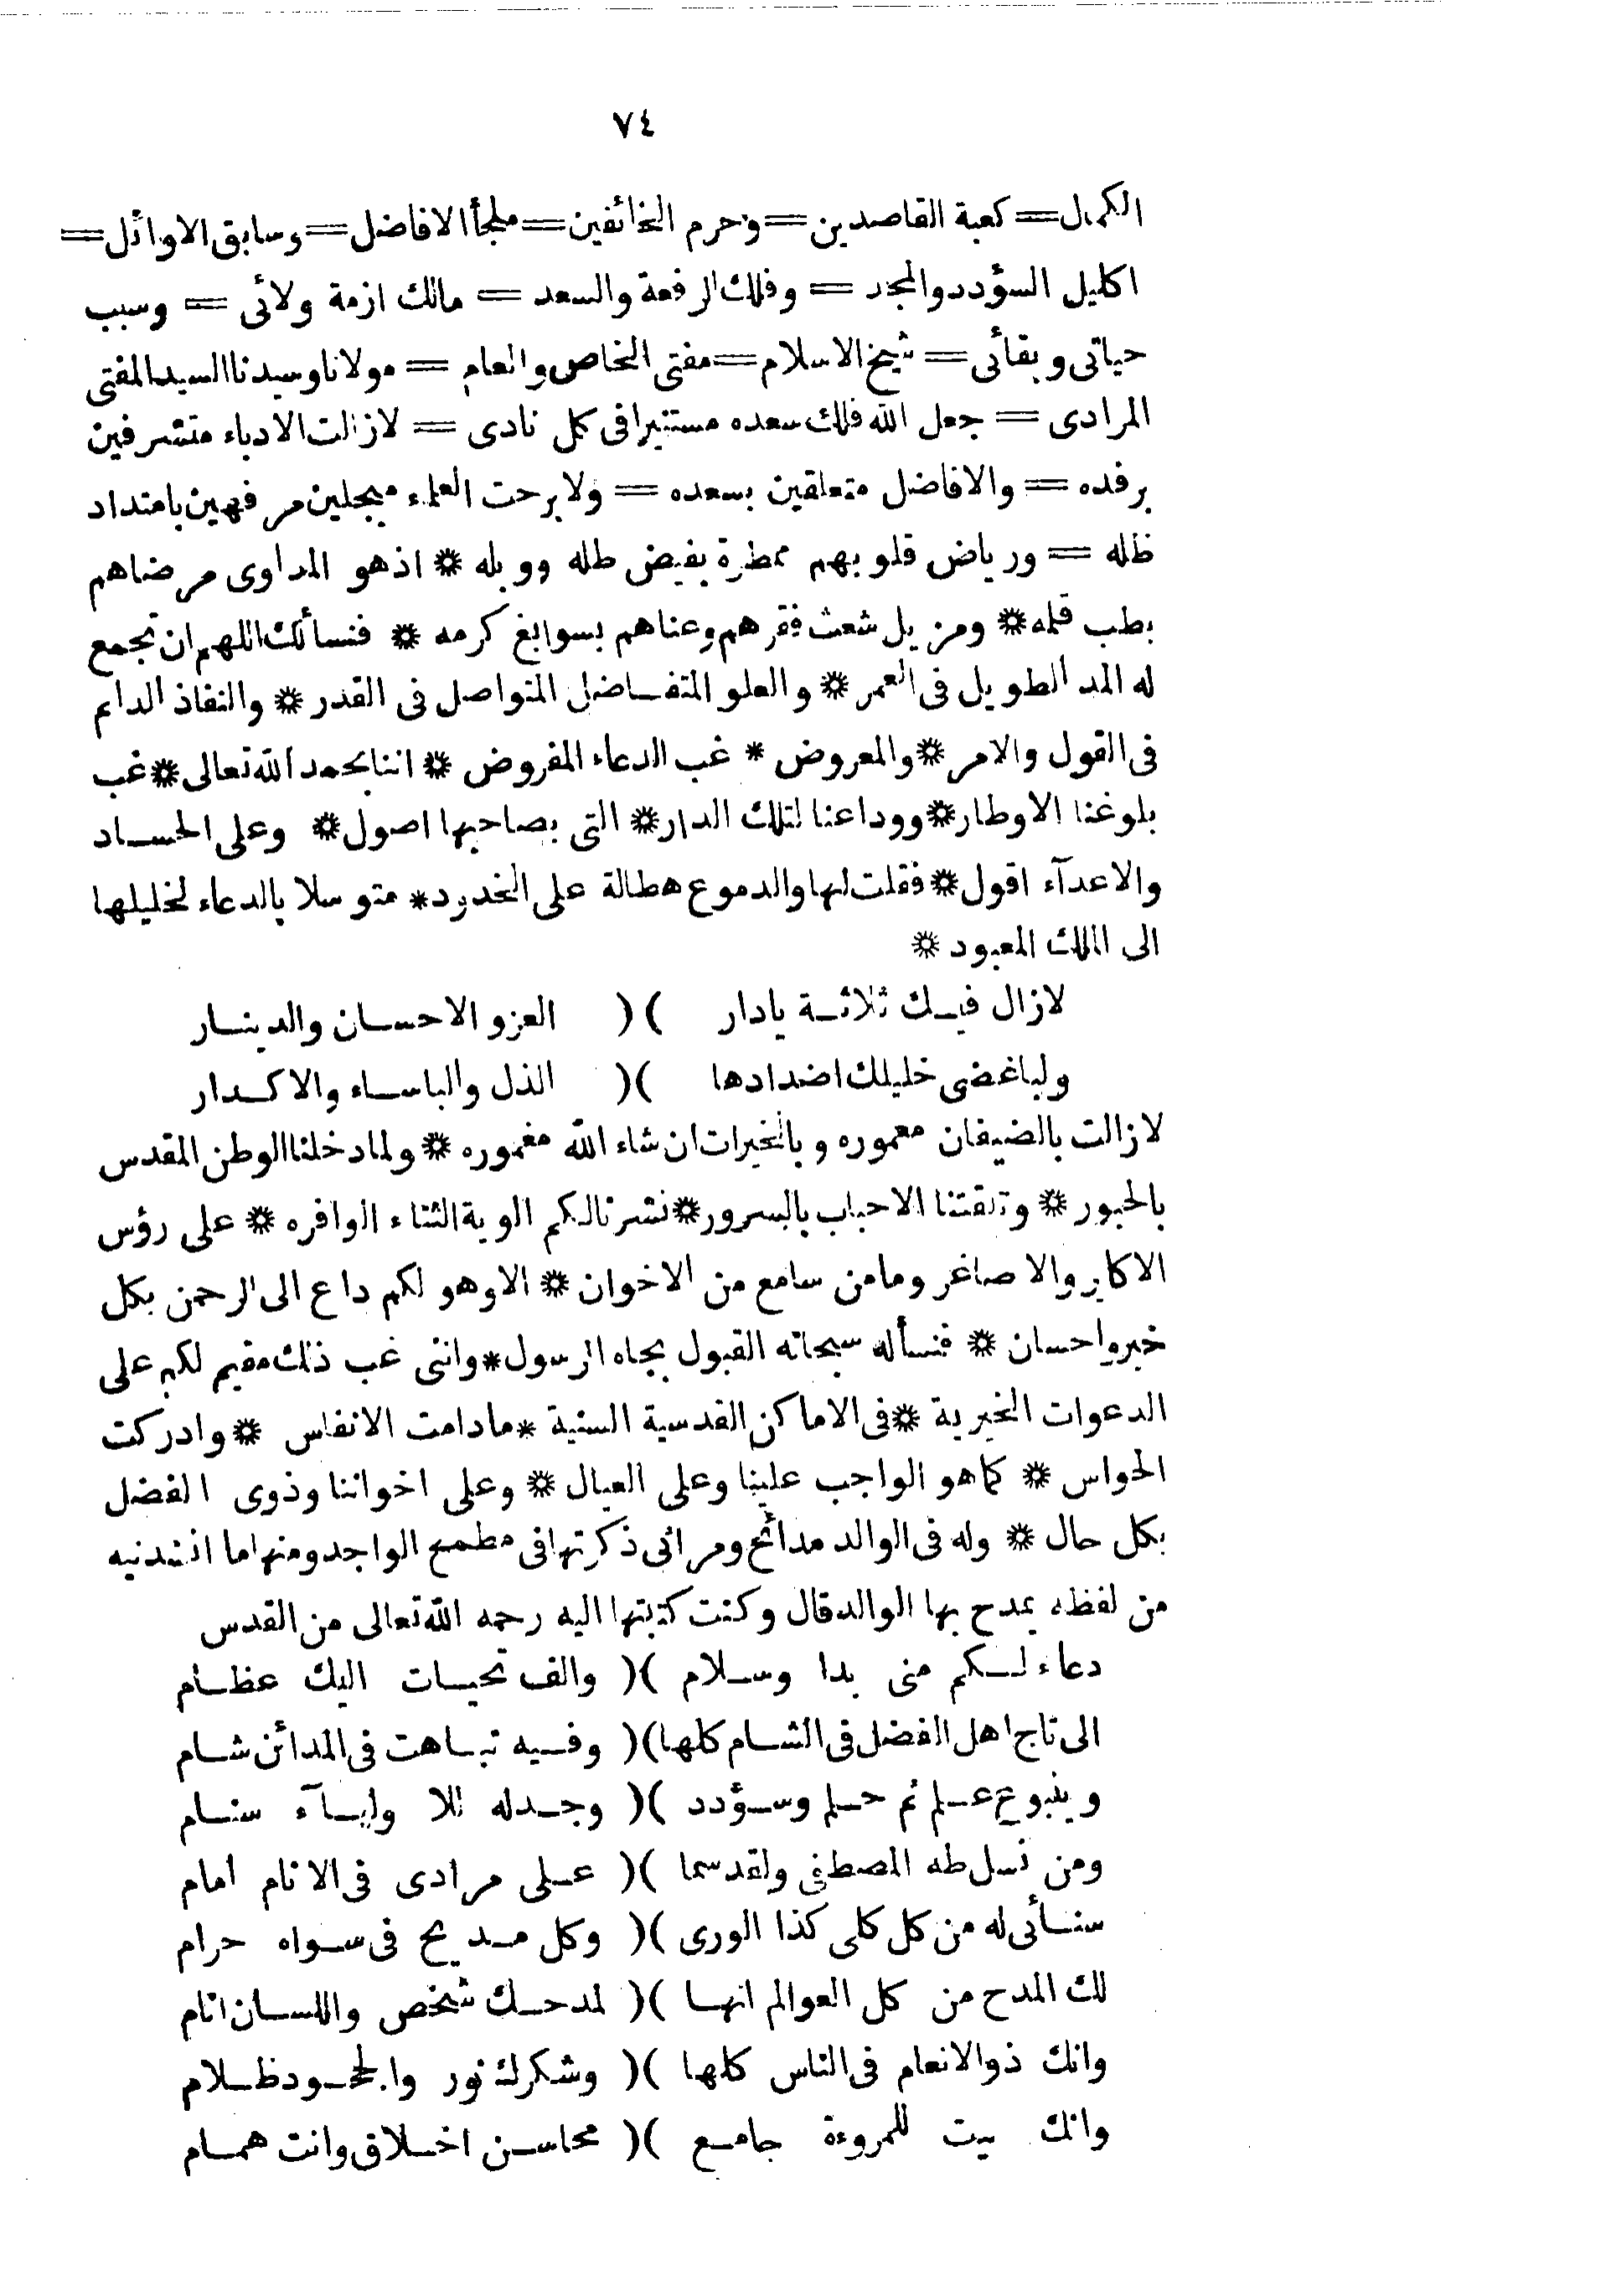 ٧٤
الكمال = كعبة القاصدين = وحرم الخائفين = ملجأ الافاضل = وسابق الاوائل =
اكليل السؤدد والمجد = وفلك الرفعة والسعد = مالك ازمة ولائى = وسبب
حياتى وبقائى = شيخ الاسلام = مفتى الخاص والعام = مولانا وسيدنا السيد المفتى
المرادى = جعل الله فلك سعده مستنيرا فى كل نادى = لازالت الادباء متشرفين
برفده = والافاضل متعلقين بسعده = ولا برحت العلماء مبجلين مرفهين بامتداد
ظله = ورياض قلوبهم ممطرة بفيض طله ووبله * اذ هو المداوى مرضاهم
بطب قلمه * ومزيل شعث فقرهم وعناهم بسوابغ كرمه * فنسألك اللهم ان تجمع
له المد الطويل فى العمر * والعلو المتفاضل المتواصل فى القدر * والنفاذ الدائم
فى القول والامر * والمعروض * غب الدعاء المفروض * اننا بحمد الله تعالى * غب
بلوغنا الاوطار * ووداعنا لتلك الدار * التى بصاحبها اصول * وعلى الحساد
والاعدآء اقول * فقلت لها والدموع هطالة على الخدود * متوسلا بالدعاء لخليلها
الى الملك المعبود *
لازال فيك ثلاثة يادار )( العز والاحسان والدينار
ولباغضى خليلك اضدادها )( الذل والباساء والاكدار
لازالت بالضيفان معموره وبالخيرات ان شاء الله مغموره * ولما دخلنا الوطن المقدس
بالحبور * وتلقتنا الاحباب بالسرور * نشرنا لكم الوية الثناء الوافره * على رؤس
الاكابر والاصاغر وما من سامع من الاخوان * الا وهو لكم داع الى الرحمن بكل
خير واحسان * فنسأله سبحانه القبول بجاه الرسول * واننى غب ذلك مقيم لكم على
الدعوات الخيرية * فى الاماكن القدسية السنية * مادامت الانفاس * وادركت
الحواس * كما هو الواجب علينا وعلى العيال * وعلى اخواننا وذوى الفضل
بكل حال * وله فى الوالد مدائح ومراثى ذكرتها فى مطمح الواجد ومنها ما انشدنيه
من لفظه يمدح بها الوالد قال وكنت كتبتها اليه رحمه الله تعالى من القدس
دعاء لكم منى بدا وسلام )( والف تحيات اليك عظام
الى تاج اهل الفضل فى الشام كلها )( وفيه تباهت فى المدائن شام
وينبوع علم ثم حلم وسؤدد )( وجد له للاوليآء سنام
ومن نسل طه المصطفى ولقد سما )( على مرادى فى الانام امام
سنأى له من كل كلى كذا الورى )( وكل مديح فى سواه حرام
لك المدح من كل العوالم انها )( لمدحك شخص واللسان انام
وانك ذو الانعام فى الناس كلها )( وشكرك نور والجحود ظلام
وانك بيت للمروءة جامع )( محاسن اخلاق وانت همام